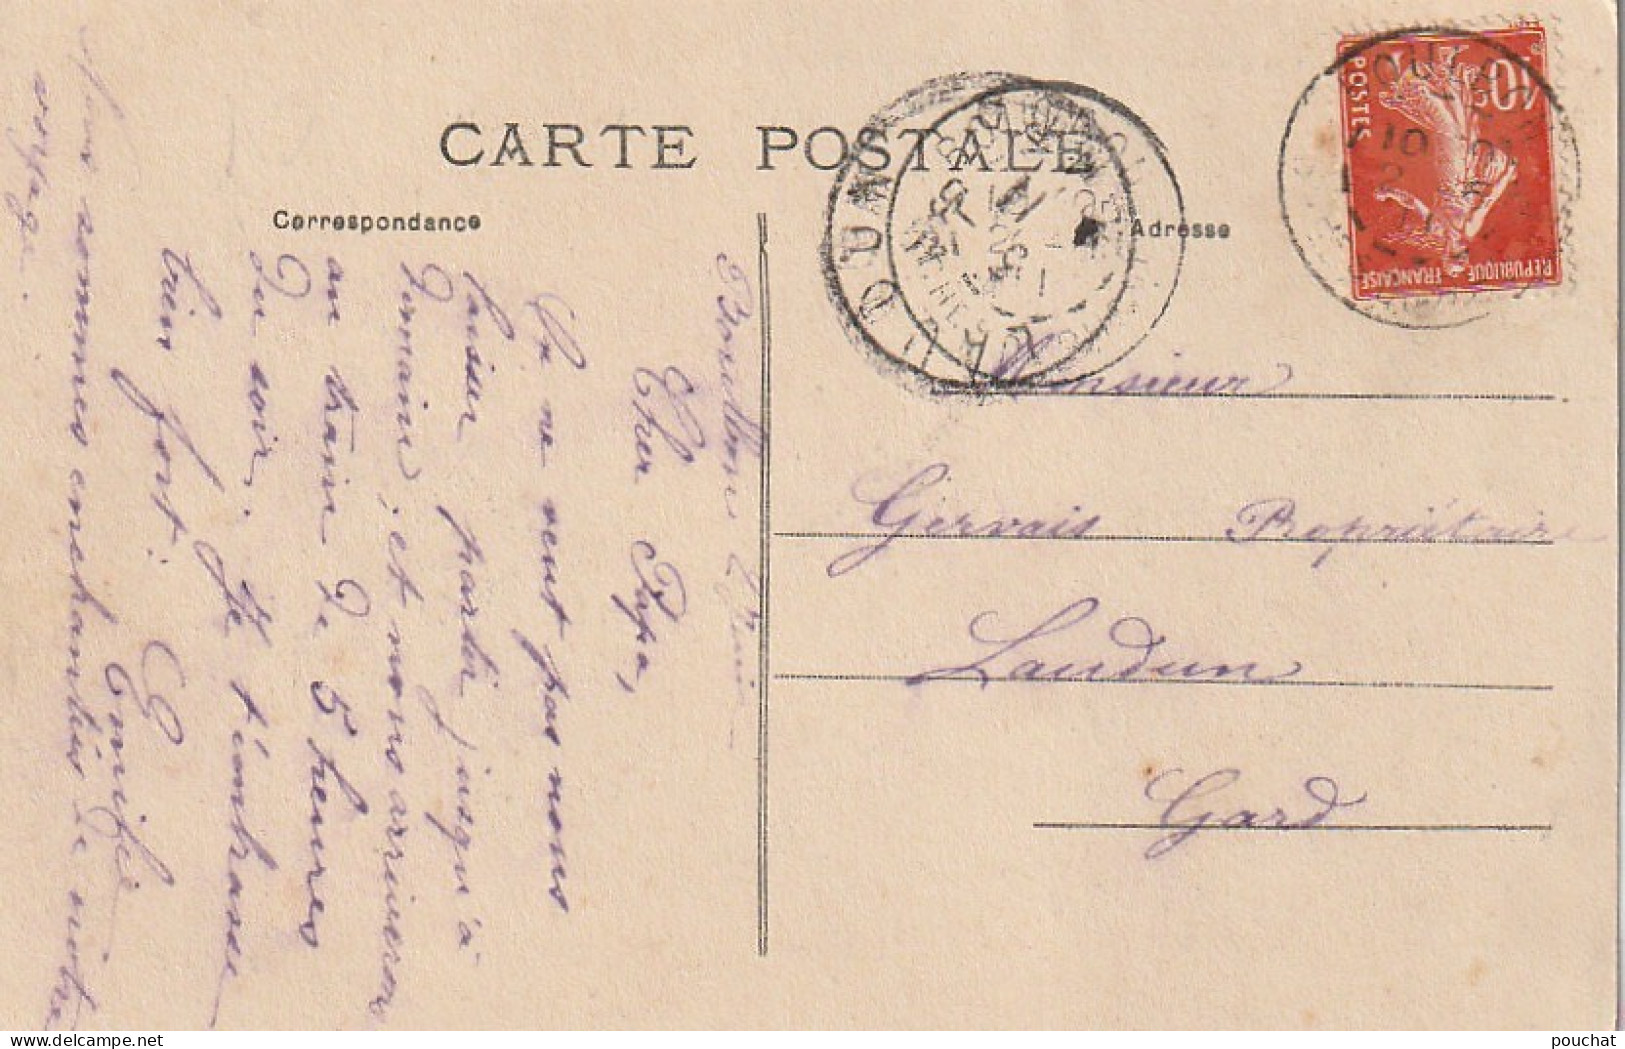 CARTE POSTALE
Correspondance
Adresse
Cher Papa,
On ne veut pas nous
laisser partir jusqu'à
Demain, et nous arriverons
au train de 5 heures
Du soir. Je t'embrasse
bien fort.
Nous sommes enchantés de notre
voyage.
Monsieur
Gervais Propriétaire
Laudun
Gard
10c
POSTES
REPUBLIQUE FRANCAISE
LAUDUN
pouchat